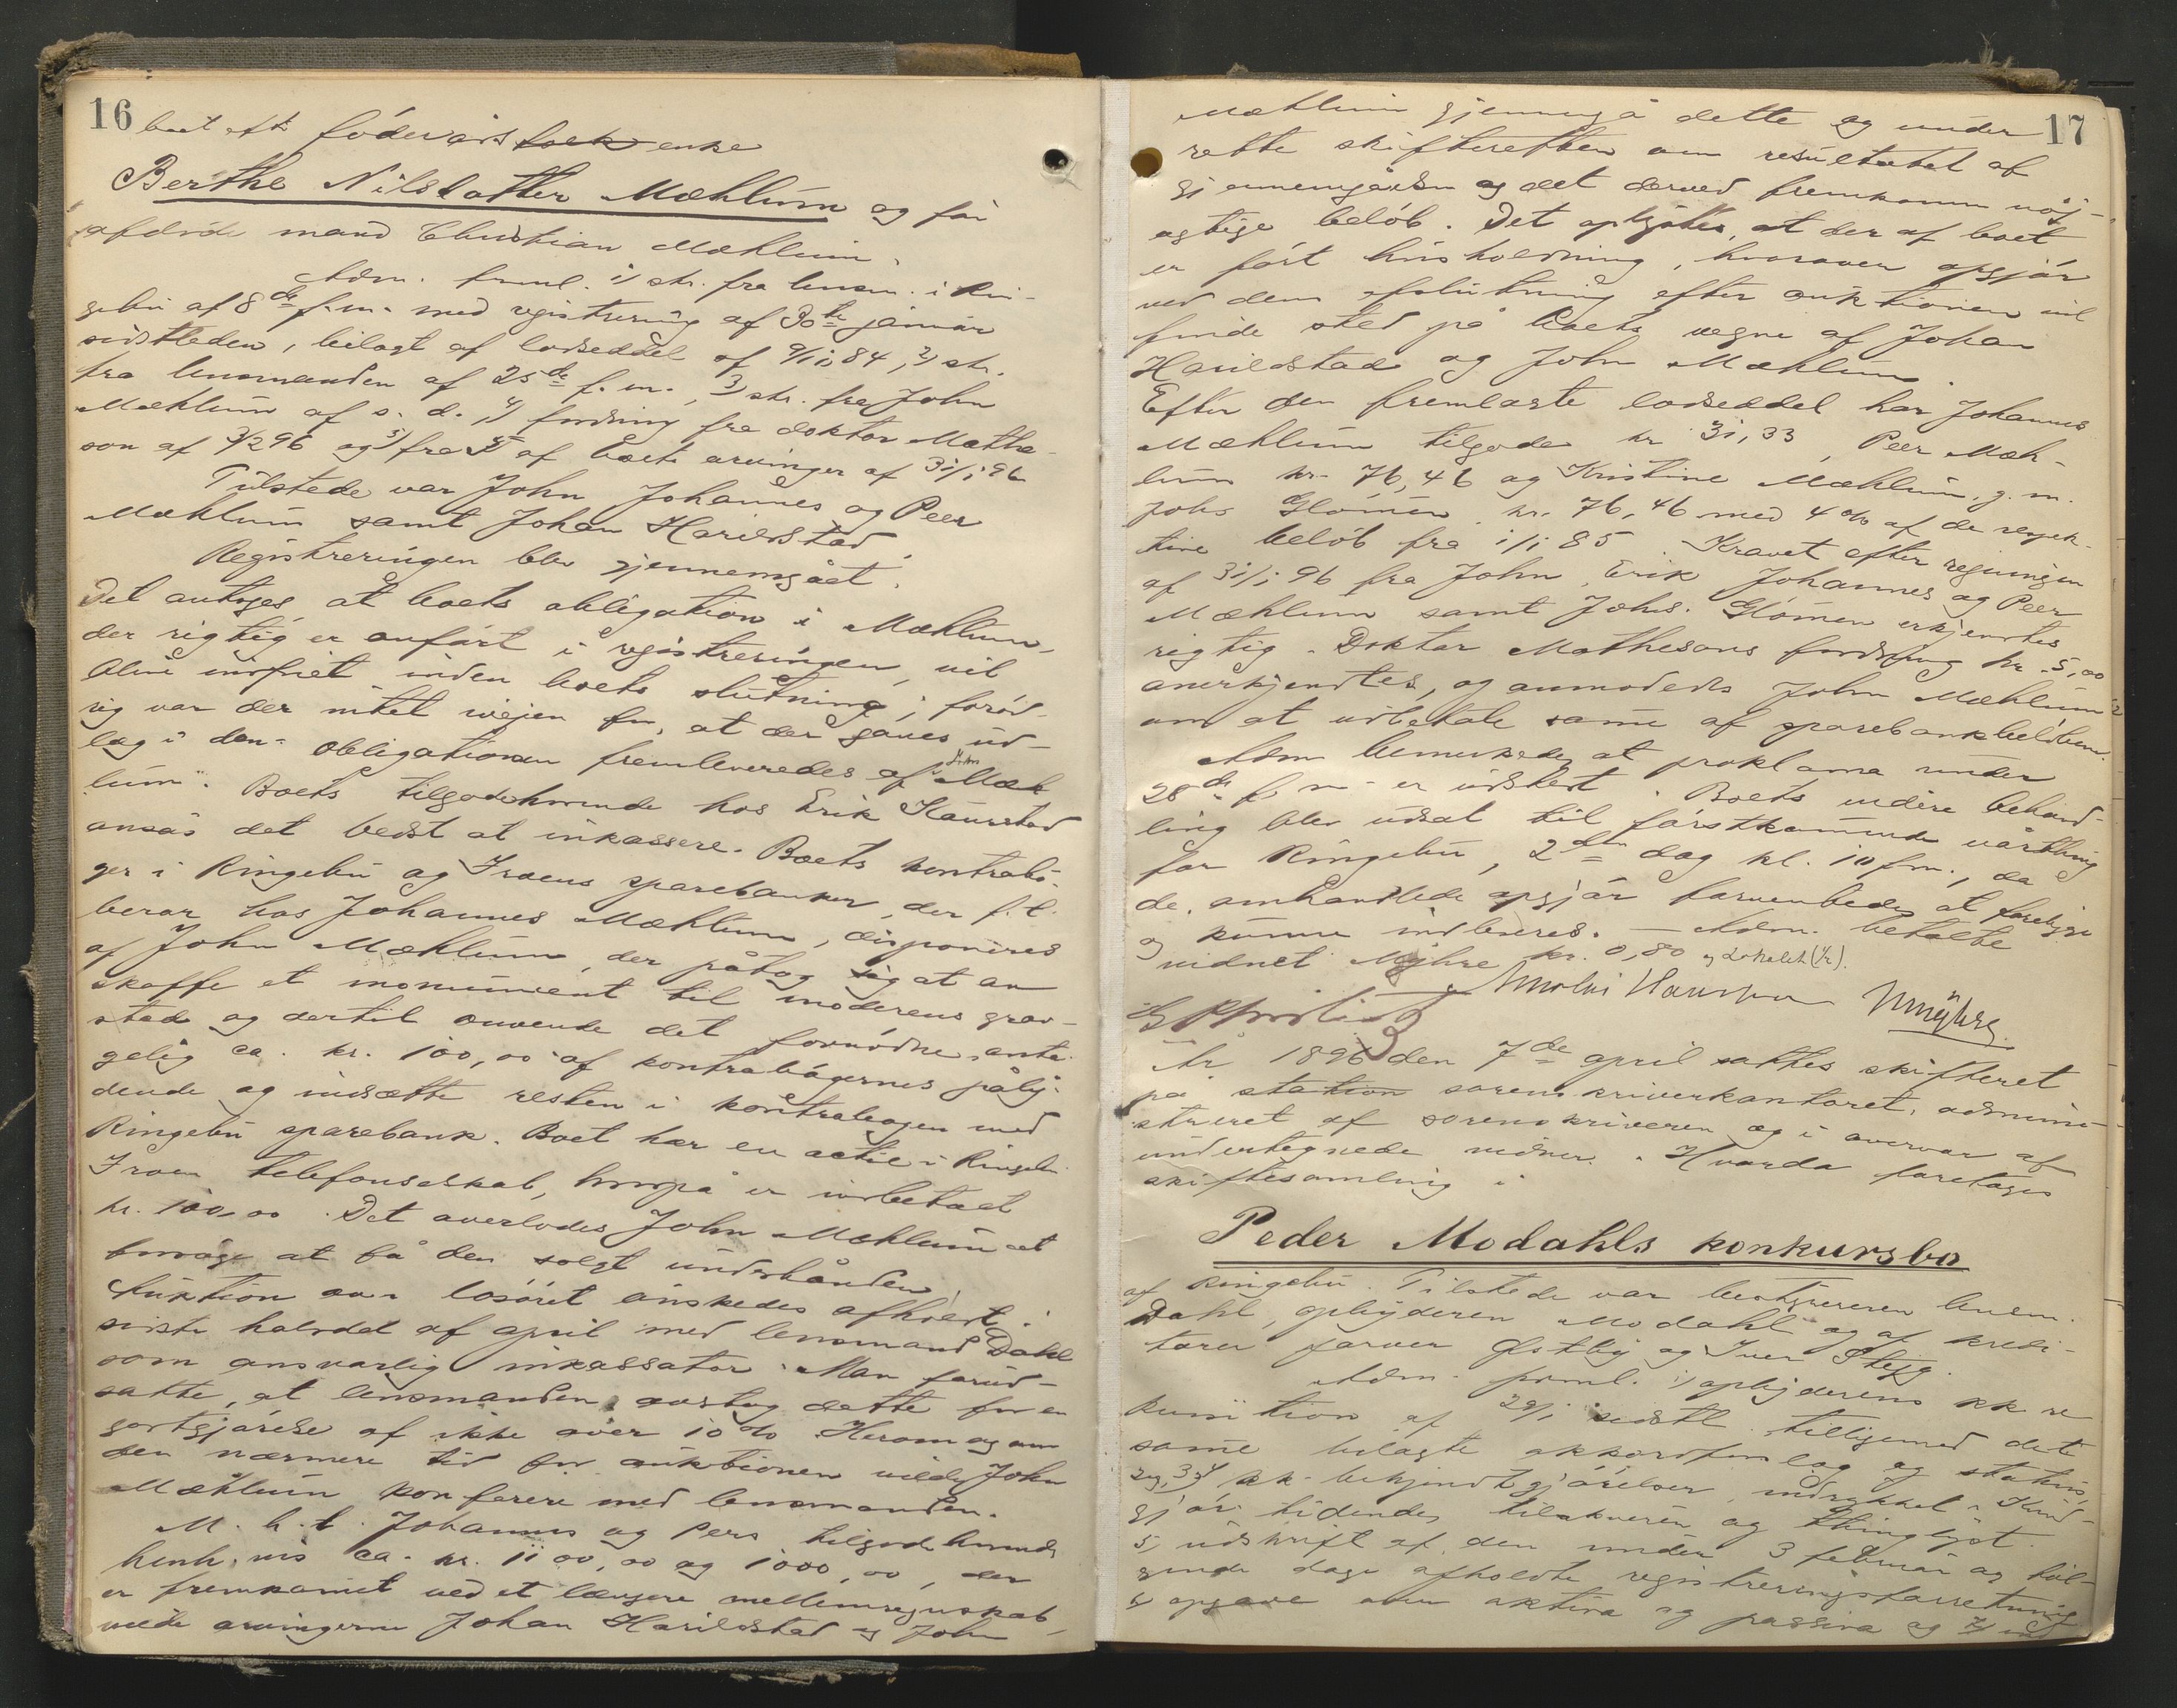 16
boet eft. föderåds folk enke
Berthe Nilsdatter Mæhlum og før
afdøde mand Christian Mæhlum.
Adm. freml. 1) skr. fra lensm. i Rin-
gebu af 8de f.m. med registrering af 30te januar
sidstleden, bilagt af lodseddel af 9/11 84, 2) skr.
fra lensmanden af 25de f.m., 3) skr. fra John
Mæhlum af s. d. 4) fordring fra doktor Mathe-
son af 3/2 96 og 5) fra 5 af boets arvinger af 31/1 96
Tilstede var John Johannes og Peer
Mæhlum samt Johan Harildstad.
Registreringen blev gjennemgået.
Det antoges, at boets obligation i Mæhlum,
der rigtig er anført i registreringen, vil
blive indfriet inden boets slutning; forøv-
rig var der intet ivejen for, at der gaves ud-
læg i den. Obligationen fremleveredes af John Mæh-
lum. Boets tilgodehavende hos Erik Kaurstad
ansås det bedst at inkassere. Boets kontrabø-
ger i Ringebu og Froens sparebanker, der f. t.
beror hos Johannes Mæhlum, disponeres
af John Mæhlum, der påtog sig at an
skaffe et monument til moderens grav-
sted og dertil anvende det fornødne, anta-
gelig ca. kr. 100,00 af kontrabøgernes pålyd-
ende og indsætte resten i kontrabogen med
Ringebu sparebank. Boet har en actie i Ringebu
Froen telefonselskab, hvorpå er indbetalt
kr. 100,00. Det overlodes John Mæhlum at
forsøge at få den solgt underhånden.
Auktion over løsøret ønskedes afholdt i
sidste halvdel af april med lensmand Dahl
som ansvarlig inkassator. Man forud-
satte, at lensmanden overtog dette for en
godtgjørelse af ikke over 10 %. Herom og om
den nærmere tid for auktionen vilde John
Mæhlum konferere med lensmanden.
M. h. t. Johannes og Pers tilgodehavende
henh.vis ca. kr. 1100,00 og 1000,00, der
er fremkomet ved et længere mellemregnskab,
vilde arvingerne Johan Harildstad og John
17
Mæhlum gjennemgå dette og under
rette skifteretten om resultatet af
gjennemgåelsen og det derved fremkomne nøj-
agtige beløb. Det oplystes, at der af boet
er ført husholdning, hvorover opgjør
ved dens afslutning efter auktionen vil
finde sted på boets vegne af Johan
Harildstad og John Mæhlum.
Efter den fremlagte lodseddel har Johannes
Mæhlum tilgode kr 31,33, Peer Mæh-
lum kr. 76,46 og Kristine Mæhlum, g. m.
Johs Glømen kr. 76,46 med 4 % af de respek-
tive beløb fra 1/1 85. Kravet efter regningen
af 31/1 96 fra John, Erik Johannes og Peer
Mæhlum samt Johs. Glømen erkjendtes
rigtig. Doktor Mathesons fordring kr. 5,00
anerkjendtes, og anmodedes John Mæhlum
om at udbetale same af sparebankbeløbene.
Adm bemerkede, at proklama under
28de f. m. er udstedt. Boets videre behand-
ling blev udsat til førstkommende vårthing
for Ringebu, 2den dag kl. 10 fm., da
de omhandlede opgjør forventedes at foreligge
og kunne indleveres. – Adm. betalte
vidnet Myhre kr. 0,80 og Lokalet (1/2).
År 1896 den 7de april sattes skifteret
på station sorenskriverkontoret, admini-
streret af sorenskriveren og i overvær af
undertegnede vidner. Hvorda foretoges
skiftesamling i
Peder Modahls konkursbo
af Ringebu. Tilstede var bestyreren lensm.
Dahl, opbyderen Modahl og af kredi-
torer farver Østby og Iver Stigg.
Adm. freml. 1) opbyderens kk. re
kvisition af 29/1 sidstl. tilligemed det
same bilagte akkordforslag og status,
2 og 3, 4 kk. bekjendtgjørelser, indrykket i Kund-
gjør tidende, tilakveren og thinglyst.
5, udskrift af den under 3 februar og føl-
gende dage afholdte registreringsforretning
6 opgave over aktiva og passiva og 7)